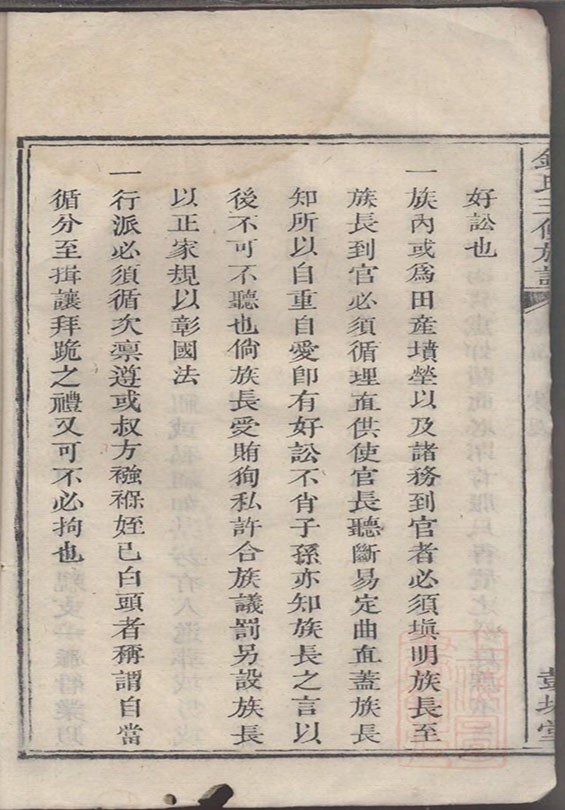 好訟也
一族內或爲田產墳塋以及諸務到官者必須塡明族長至
族長到官必須循理直供使官長聽斷易定曲直蓋族長
知所以自重自愛卽有好訟不肖子孫亦知族長之言以
後不可不聽也倘族長受賄狥私許合族議罰另設族長
以正家規以彰國法
一行派必須循次凛遵或叔方襁褓姪已白頭者稱謂自當
循分至揖讓拜跪之禮又可不必拘也